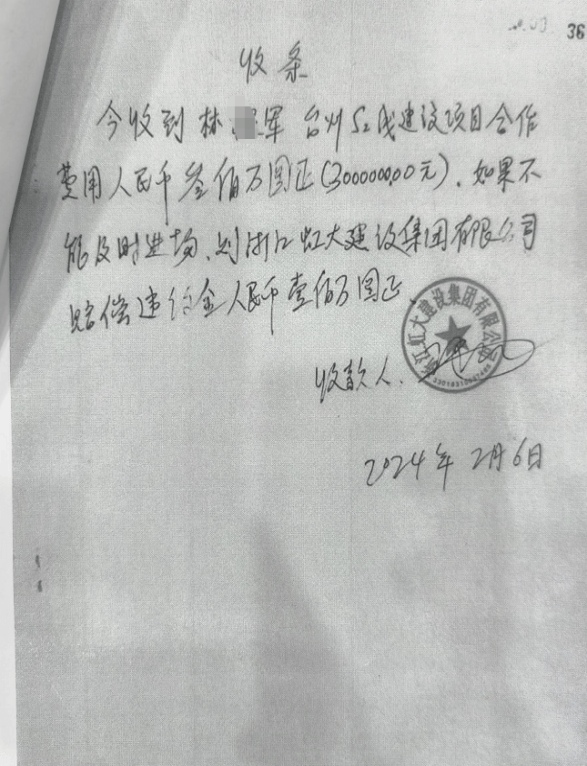 36
收条
今收到林 军台州S2线建设项目合作
费用人民币叁佰万圆正(3000000.00元)，如果不
能及时进场，则浙江虹大建设集团有限公司
赔偿违约金人民币壹佰万圆正
浙江虹大建设集团有限公司
收款人：
2024年2月6日